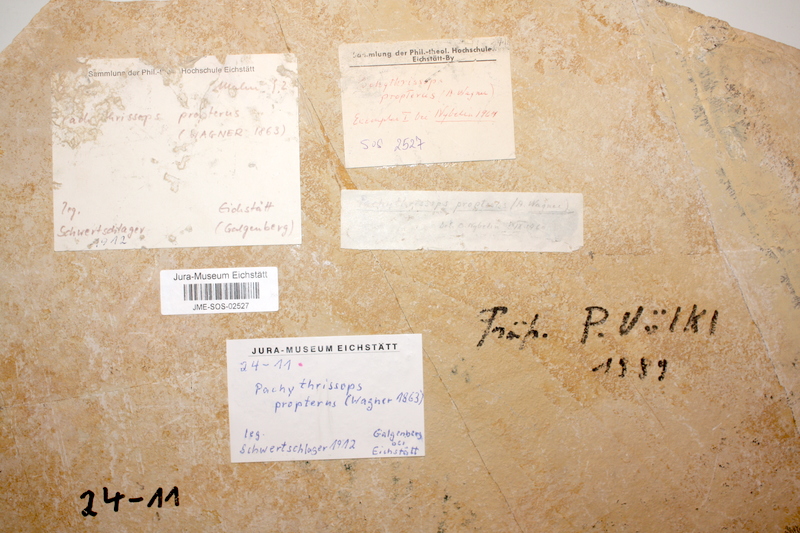 Sammlung der Phil.-theol. Hochschule Eichstätt
thrissops propterus
(WAGNER 1863)
leg.
Schwertschlager
1912
Eichstätt
(Galgenberg)
Sammlung der Phil.-theol. Hochschule
Eichstätt-By
Pachythrissops
propterus (A. Wagner)
Exemplar
SOS 2527
Pachythrissops propterus (A. Wagner)
Jura-Museum Eichstätt
JME-SOS-02527
JURA-MUSEUM EICHSTÄTT
24-11
Pachythrissops
propterus (Wagner 1863)
leg.
Schwertschlager 1912
Galgenberg
bei
Eichstätt
Präp. P. Völkl
1989
24-11